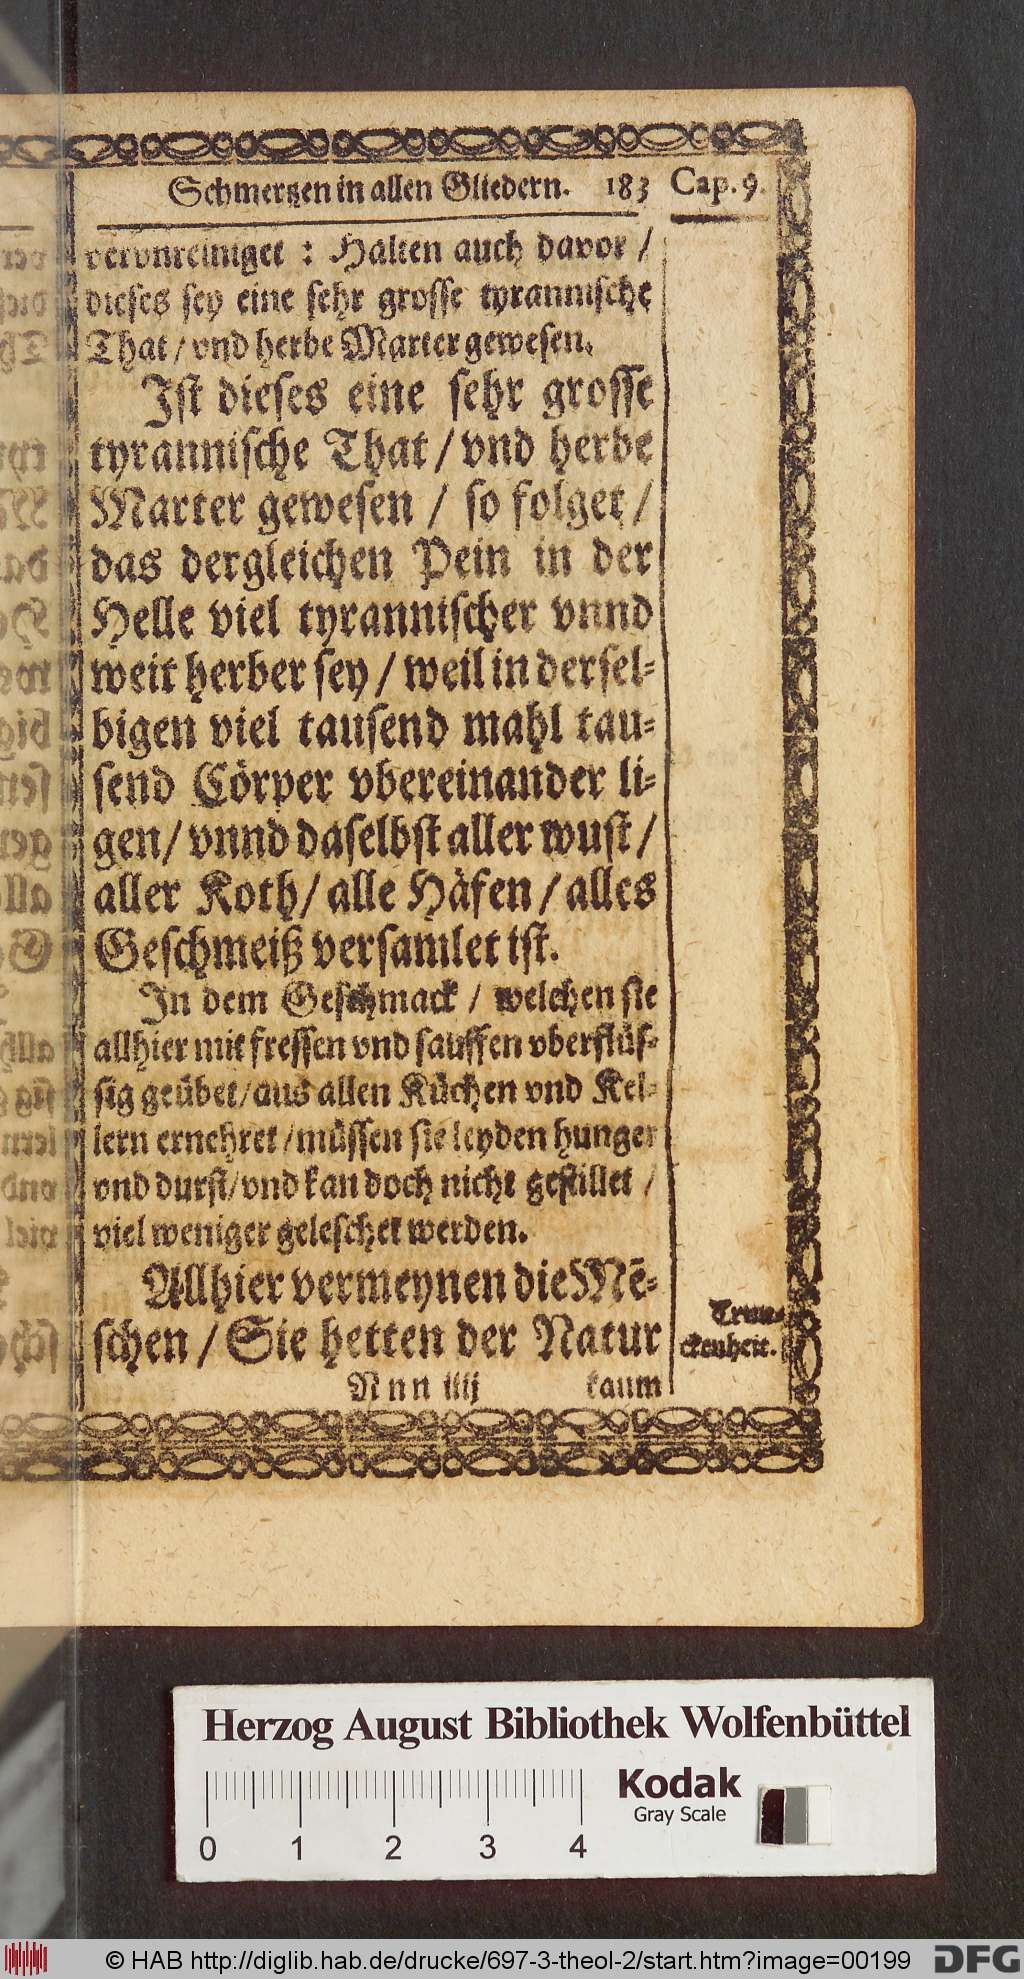 Schmertzen in allen Gliedern. 183 Cap. 9.
verunreiniget : Halten auch davor /
dieses sey eine sehr grosse tyrannische
That / vnd herbe Marter gewesen.
Ist dieses eine sehr grosse
tyrannische That / vnd herbe
Marter gewesen / so folget /
das dergleichen Pein in der
Helle viel tyrannischer vnnd
weit herber sey / weil in dersel-
bigen viel tausend mahl tau-
send Cörper vbereinander li-
gen / vnnd daselbst aller wust /
aller Koth / alle Häfen / alles
Geschmeiß versamlet ist.
In dem Geschmack / welchen sie
allhier mit fressen vnd sauffen vberflüs-
sig geübet / aus allen Küchen vnd Kel-
lern ernehret / müssen sie leyden hunger
vnd durst / vnd kan doch nicht gestillet /
viel weniger geleschet werden.
Allhier vermeynen die Mē-
schen / Sie hetten der Natur
Trun-
ckenheit.
Nnn iiij kaum
Herzog August Bibliothek Wolfenbüttel
Kodak
Gray Scale
0 1 2 3 4
© HAB http://diglib.hab.de/drucke/697-3-theol-2/start.htm?image=00199
DFG